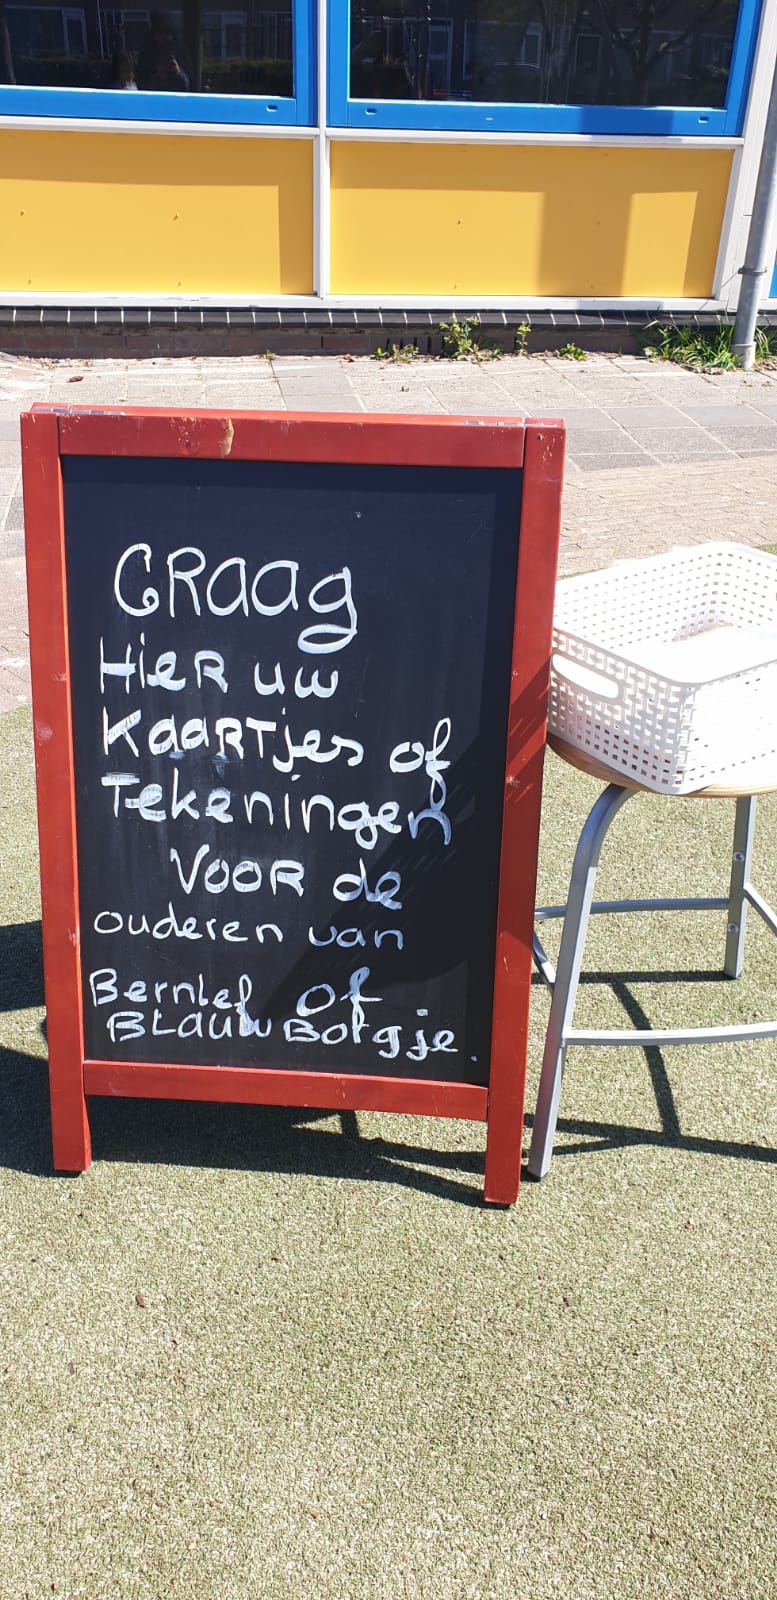 GRaag
HieR uw
KaaRTjes of
Tekeningen
VOOR de
ouderen van
Bernlef of
BLauwBorgje.